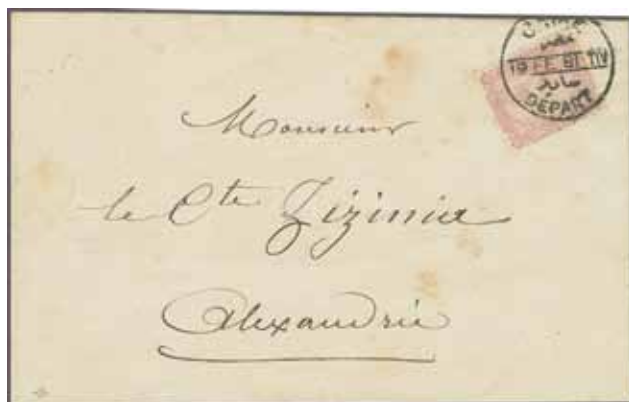 19 FE 91 T.IV
DÉPART
Monsieur
le Cte Zizinia
Alexandrie